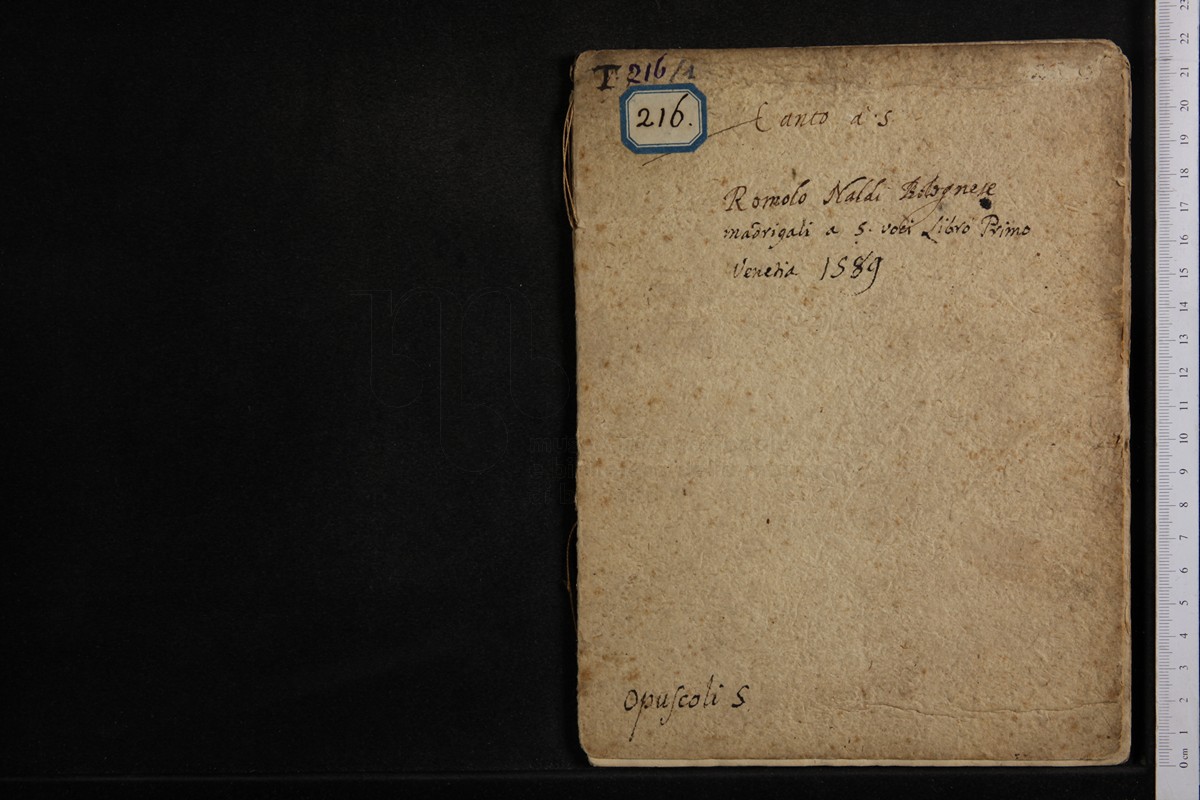 T. 216/1
216.
Canto à 5
Romolo Naldi Bolognese
madrigali a 5. voci Libro Primo
Venetia 1589
Opuſcoli 5
23
22
21
20
19
18
17
16
15
14
13
12
11
10
9
8
7
6
5
4
3
2
1
0 cm